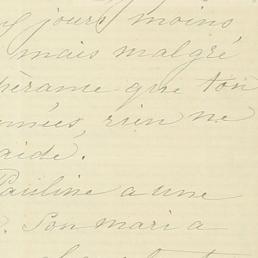 jours moins
mais malgré
que ton
rien ne
aide.
Pauline a une
Son mari a